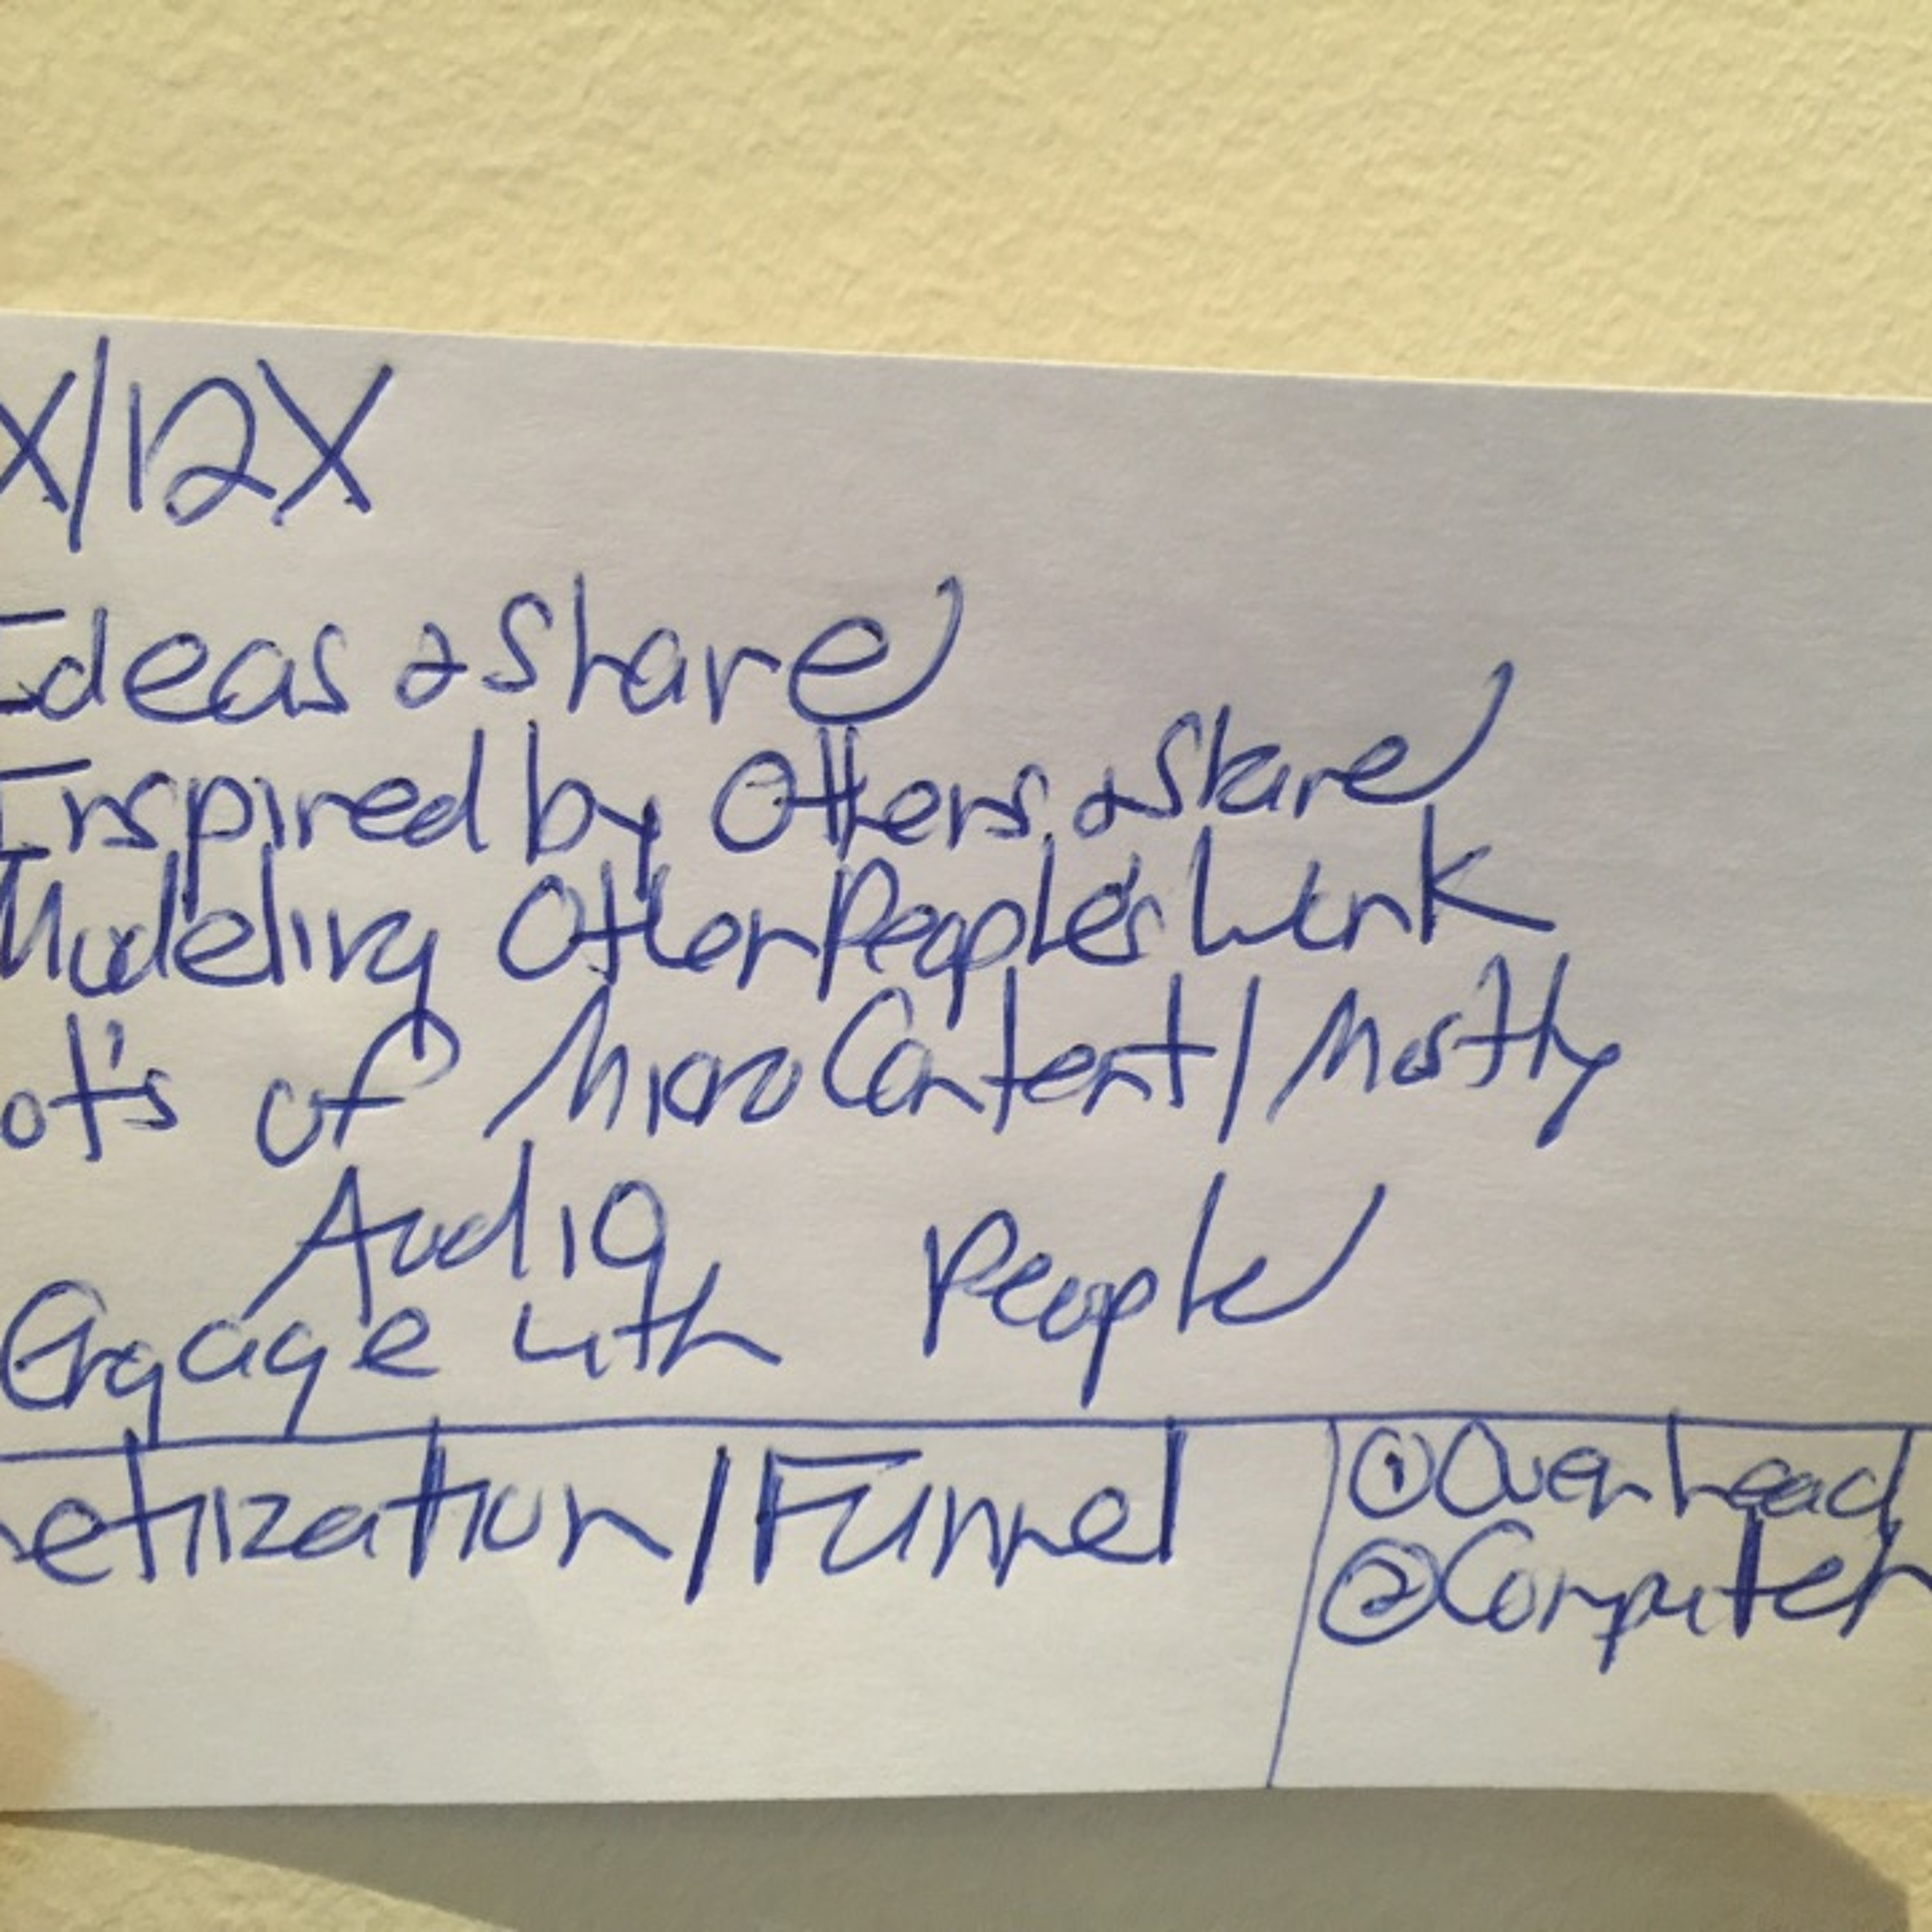 X/12X
Ideas & Share
Inspired by Others & Share
Modeling Other People's Work
ot's of Micro Content / Mostly
Audio
Engage with People
etization / Funnel
① Overhead
② Computer